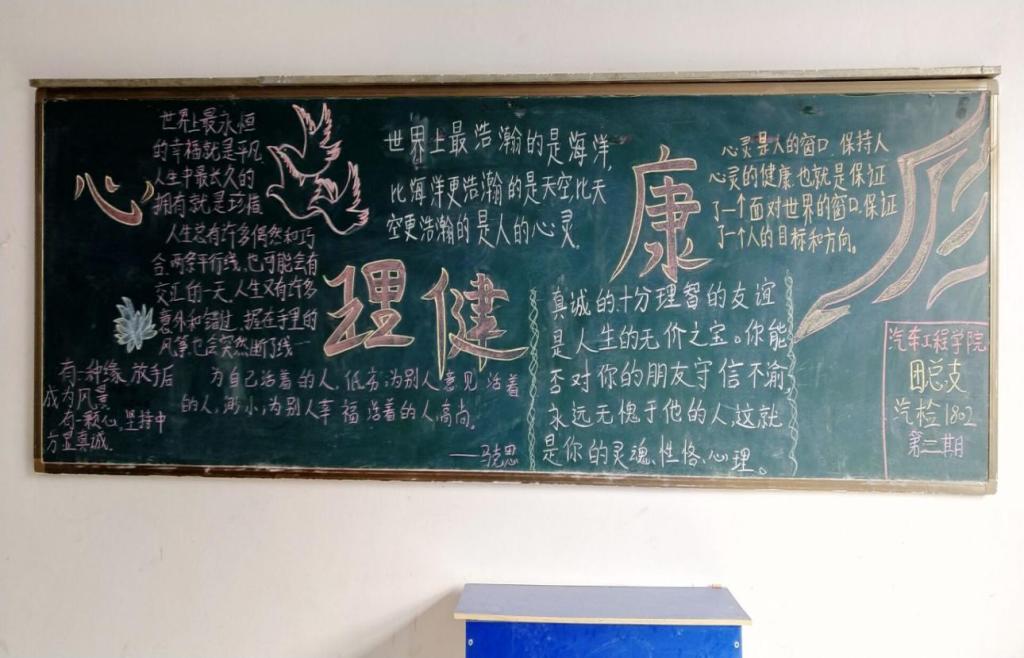 心
理
健
康
世界上最永恒
的幸福就是平凡,
人生中最长久的
拥有就是珍惜
人生总有许多偶然和巧
合,两条平行线,也可能会有
交汇的一天,人生又有许多
意外和错过,握在手里的
风筝也会突然断了线
有一种缘,放手后
成为风景
有一颗心,坚持中
方显真诚.
为自己活着的人,低劣;为别人意见活着
的人,渺小;为别人幸福活着的人,高尚。
——马克思
世界上最浩瀚的是海洋,
比海洋更浩瀚的是天空,比天
空更浩瀚的是人的心灵.
真诚的十分理智的友谊
是人生的无价之宝。你能
否对你的朋友守信不渝,
永远无愧于他的人,这就
是你的灵魂、性格、心理。
心灵是人的窗口,保持人
心灵的健康,也就是保证
了一个面对世界的窗口,保证
了一个人的目标和方向。
汽车工程学院
团总支
汽检1802
第二期